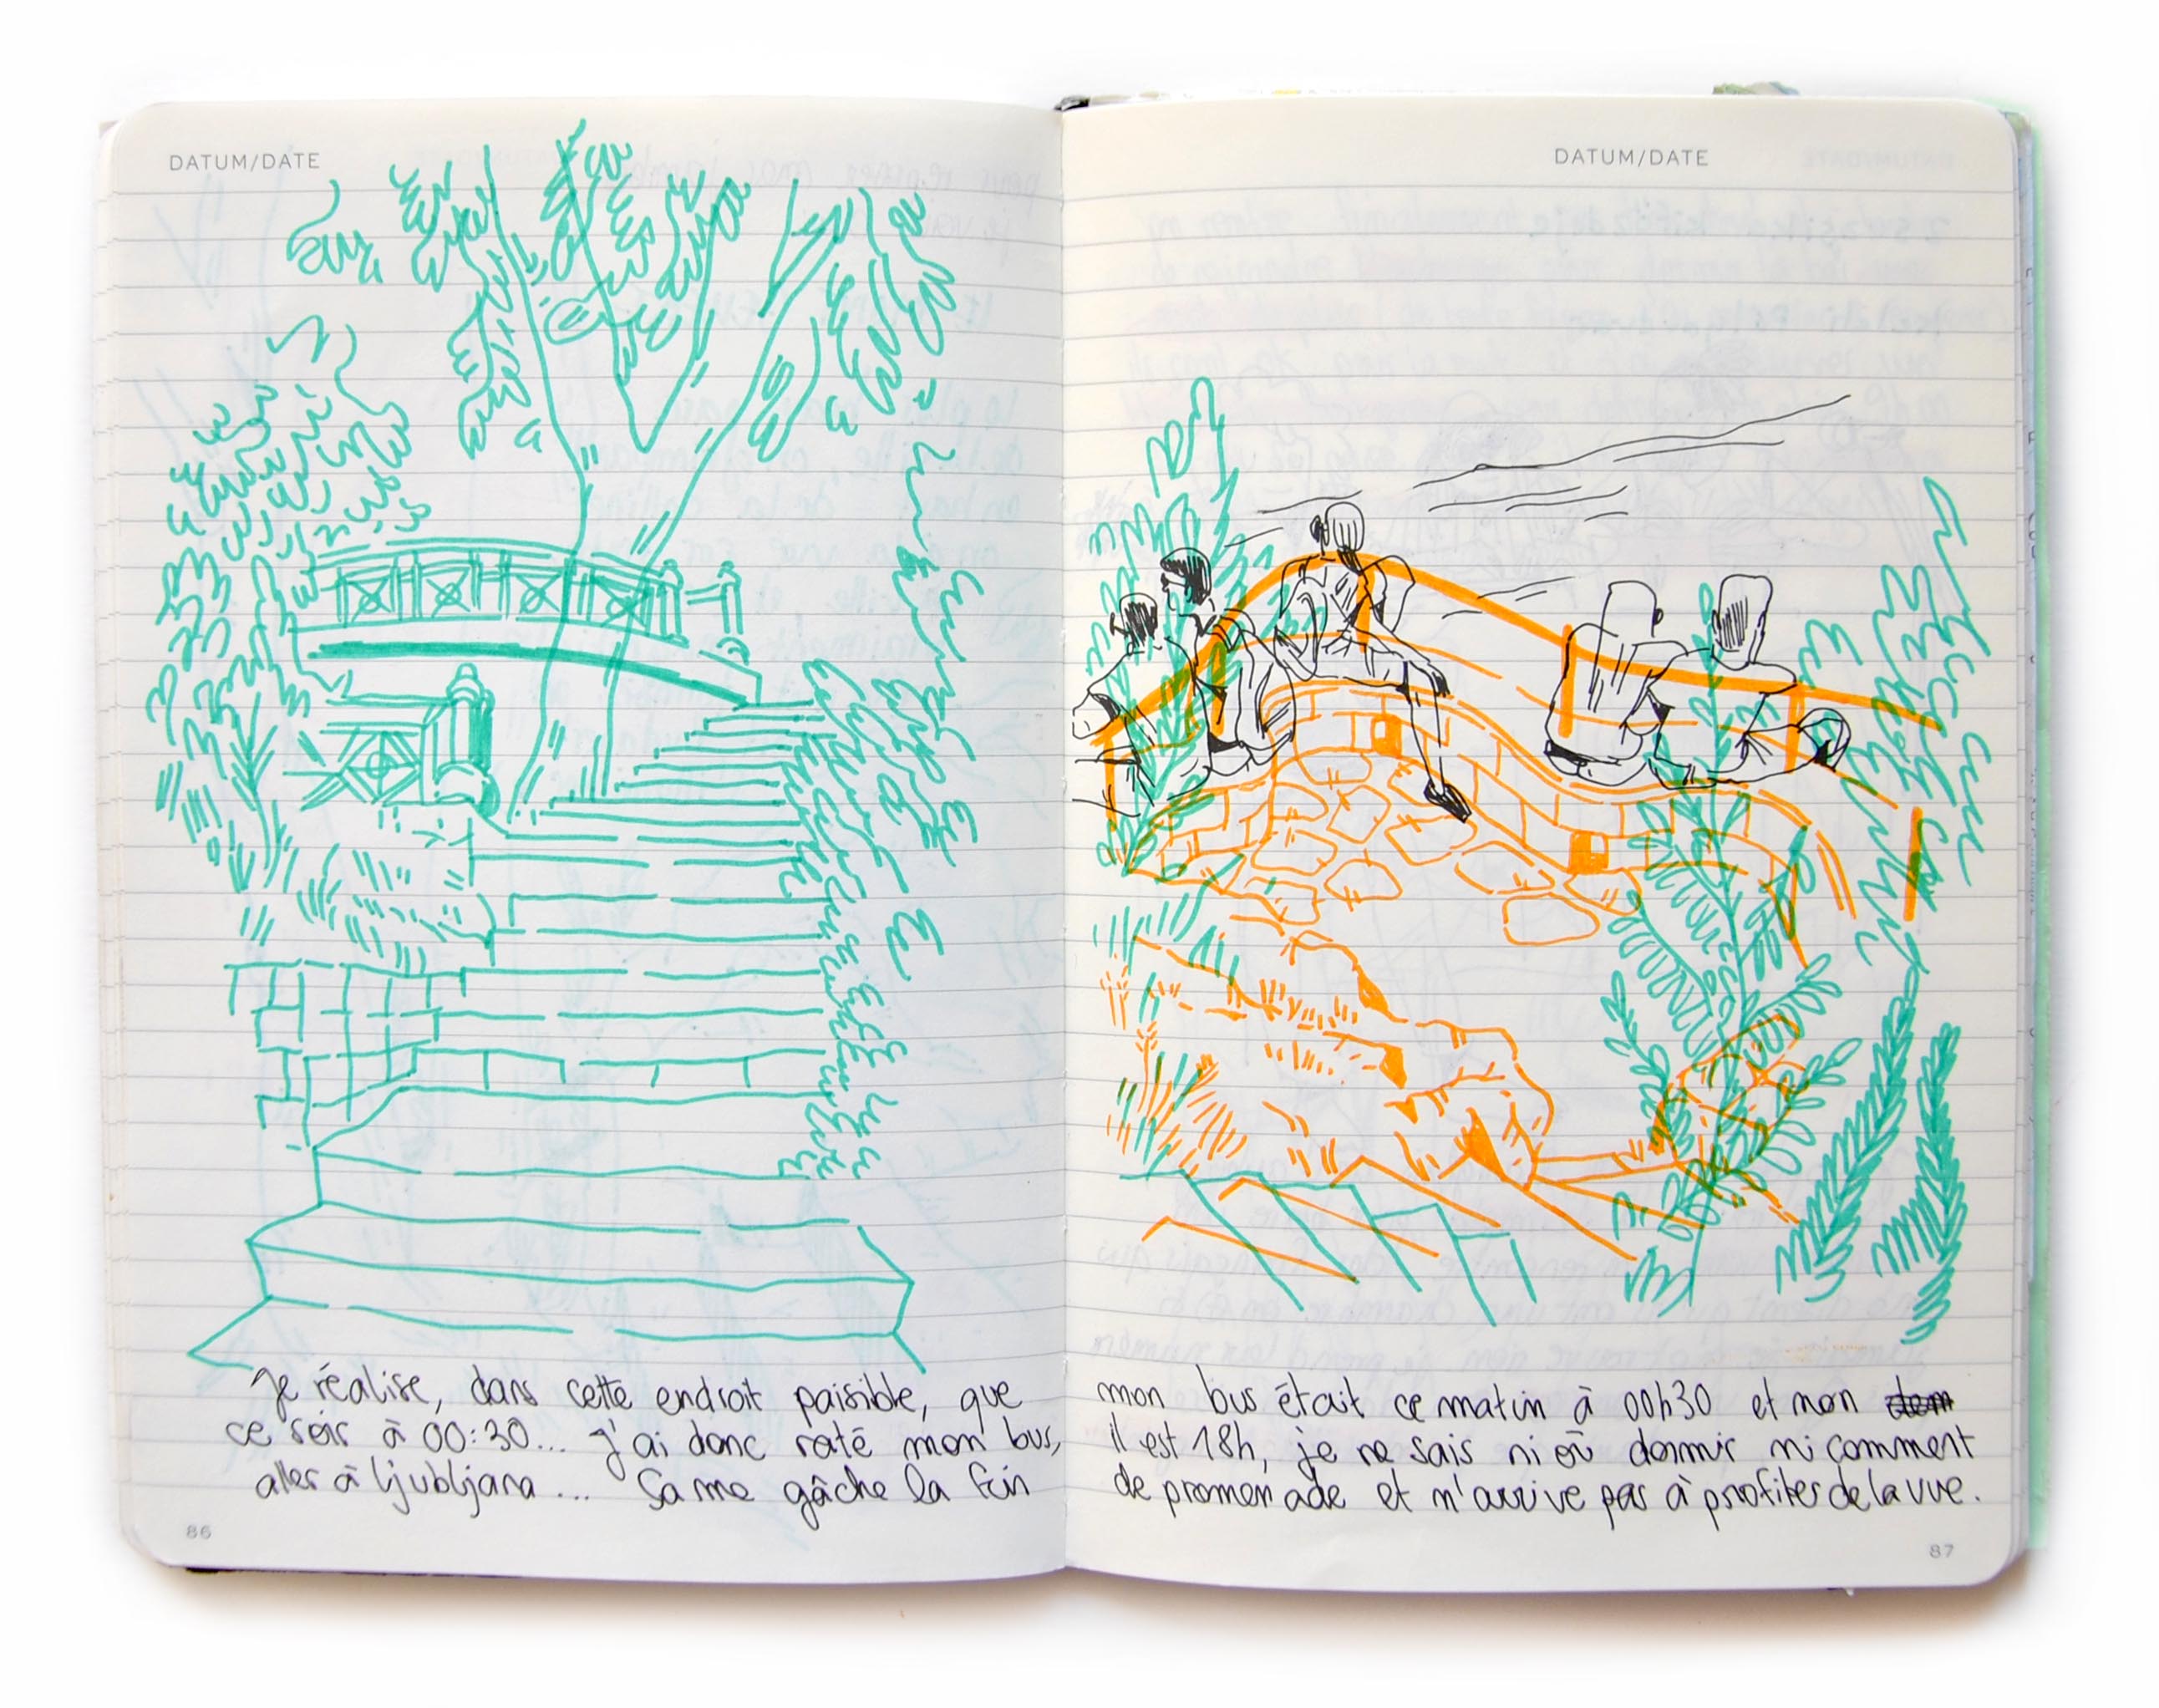 DATUM/DATE DATUM/DATE
Je réalise, dans cette endroit paisible, que mon bus était ce matin à 00h30 et non
ce soir à 00:30... J'ai donc raté mon bus, il est 18h, je ne sais ni où dormir ni comment
aller à ljubljana... Sa me gâche la fin de promenade et n'arrive pas à profiter de la vue.
86 87